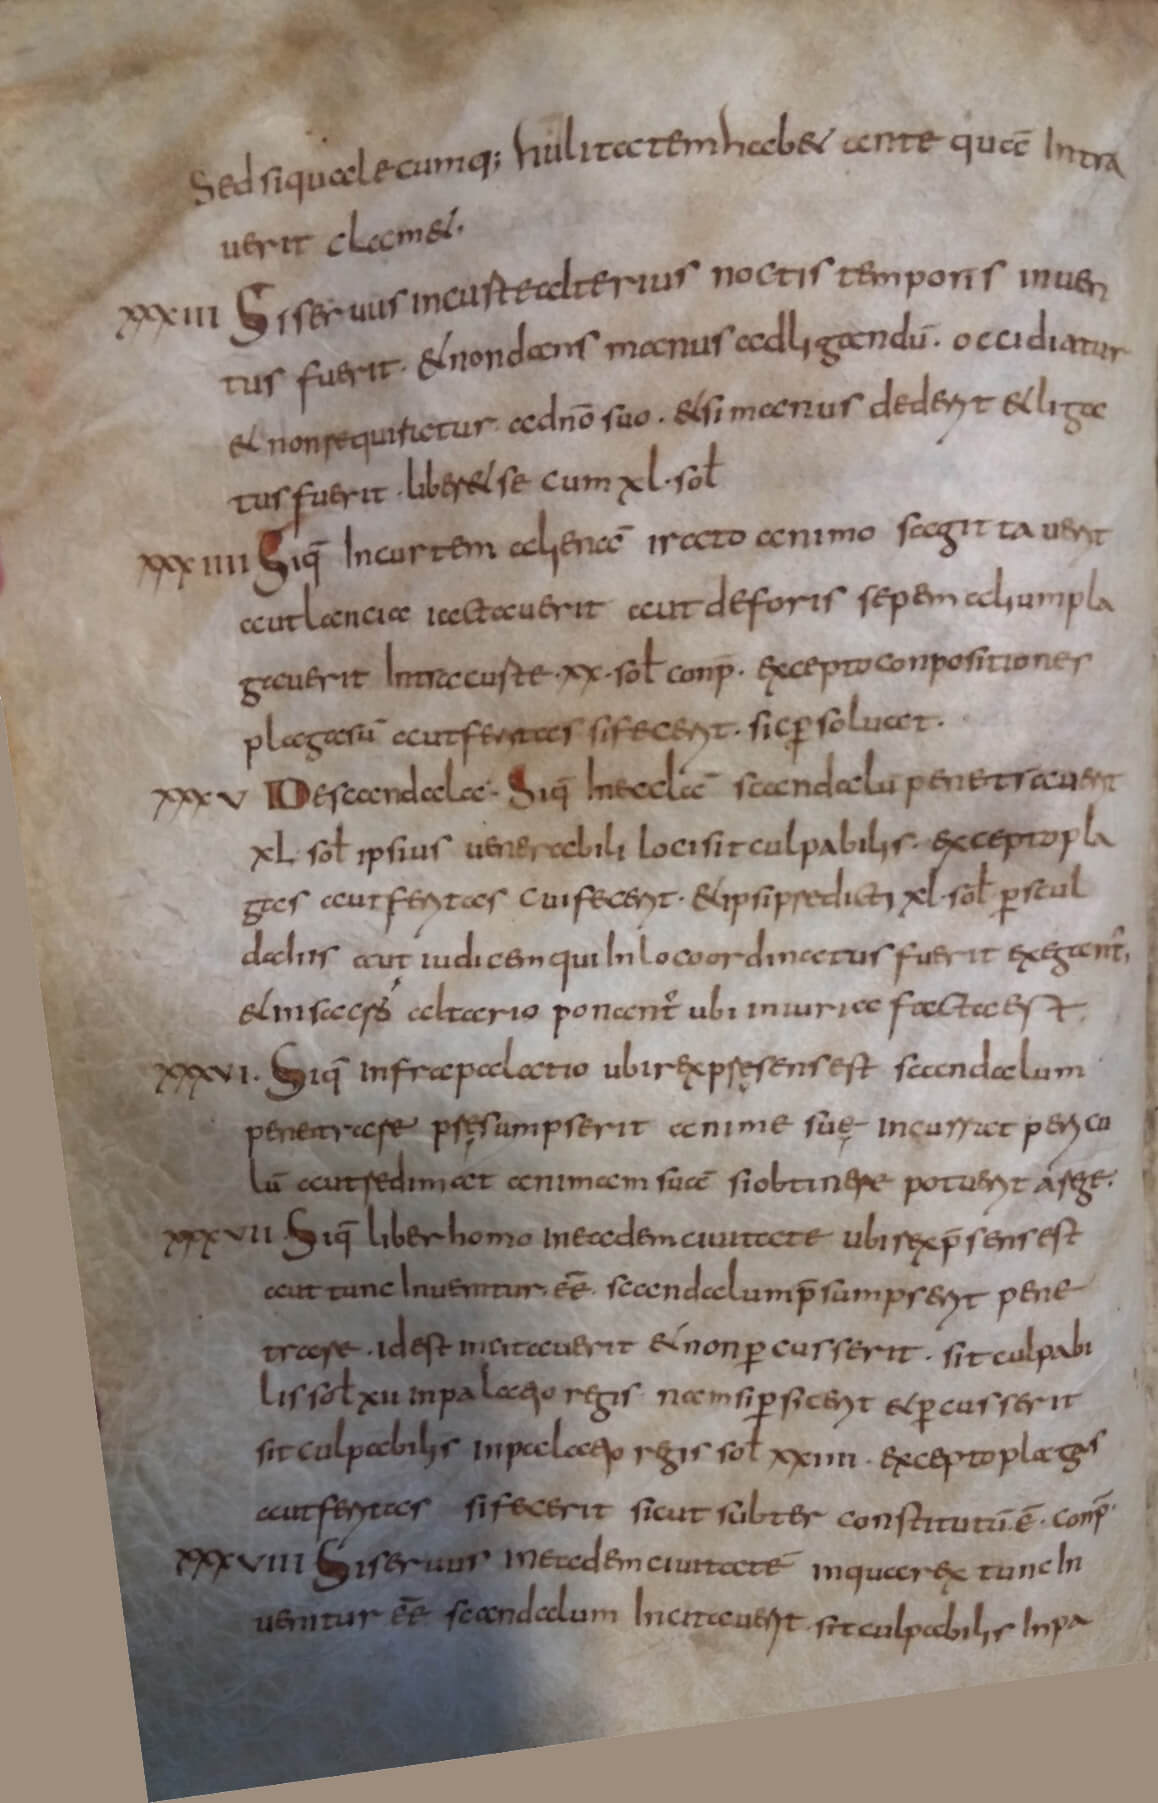 Sed siqualecumq; hutilitatem habet ante quā Intra
uerit clamet.
xxxiii Si seruus incurte alterius noctis temporis inuen
tus fuerit. et non dans manus ad ligandū. occidiatur
et non requiratur ad dnō suo. et si manus dederit et liga
tus fuerit. liberet se cum xl. sol
xxxiiii Siq̄ In curtem alienā irato animo sagitta uerit
aut lancia iactauerit aut deforis sepem alium pla
gauerit Intra curte. xx. sol conp̄. excepto conpositiones
plagarū aut feritas si fecerit. sic p̄ soluat.
xxxv De scandala. Siq̄ In ecclā scandalū penetrauerit
xl. sol ipsius uenerabili loci sit culpabilis. excepto pla
gas aut feritas cui fecerit. et ipsi predicti xl. sol p̄ scul
dahis aut iudicem qui In loco ordinatus fuerit exegant̄,
et in sacrs̄ altario ponant̄ ubi iniuria facta est.
xxxvi. Siq̄ infra palatio ubi rex presens est scandalum
penetrare presumpserit anime sue incurrat pericu
lū aut redimat animam suā si obtinere potuerit a rege.
xxxvii Siq̄ liber homo in eadem ciuitate ubi rex p̄sens est
aut tunc Inuenitur ēē. scandalum p̄sumpserit pene
trare. id est incitauerit et non p̄cusserit. sit culpabi
lis sol xii in palatio regis nam si p̄ficerit et p̄cusserit
sit culpabilis in palatio regis sol xxiiii. excepto plagas
aut feritas si fecerit sicut subter constitutū ē. conp̄.
xxxviii Si seruus in eadem ciuitate in qua rex tunc In
uenitur ēē scandalum Incitauerit sit culpabilis In pa